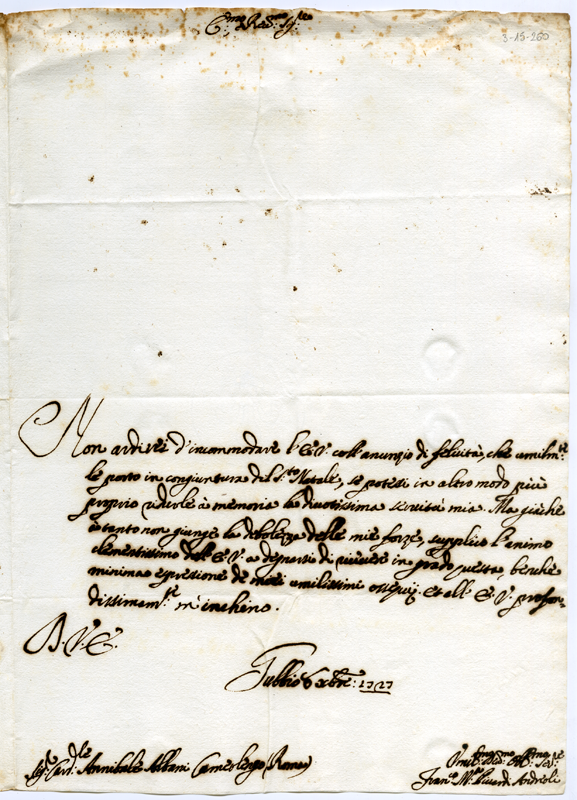 Em.mo e Rev.mo Sig.re
3-15-260
Non ardirei d'incommodare l'E.V. coll'annunzio di felicità, che umilm.te
le porto in congiuntura del S.to Natale, se potessi in altro modo più
proprio ridurle à memoria la divotissima servitù mia. Ma giàche
à tanto non giunge la debolezza delle mie forze, supplico l'animo
clementissimo dell'E.V. a degnarsi di ricevere in grado questa, benche
minima espressione de miei umilissimi ossequij. et all'E.V. profon-
dissimam.te m'inchino.
D. V. E.
Gubbio 6 xbre: 1727
Sig.r Card.le Annibale Albani Camerlengo (Roma)
Umil.mo Div.mo Obb.mo Ser.re
Fran.co M.a Andreoli